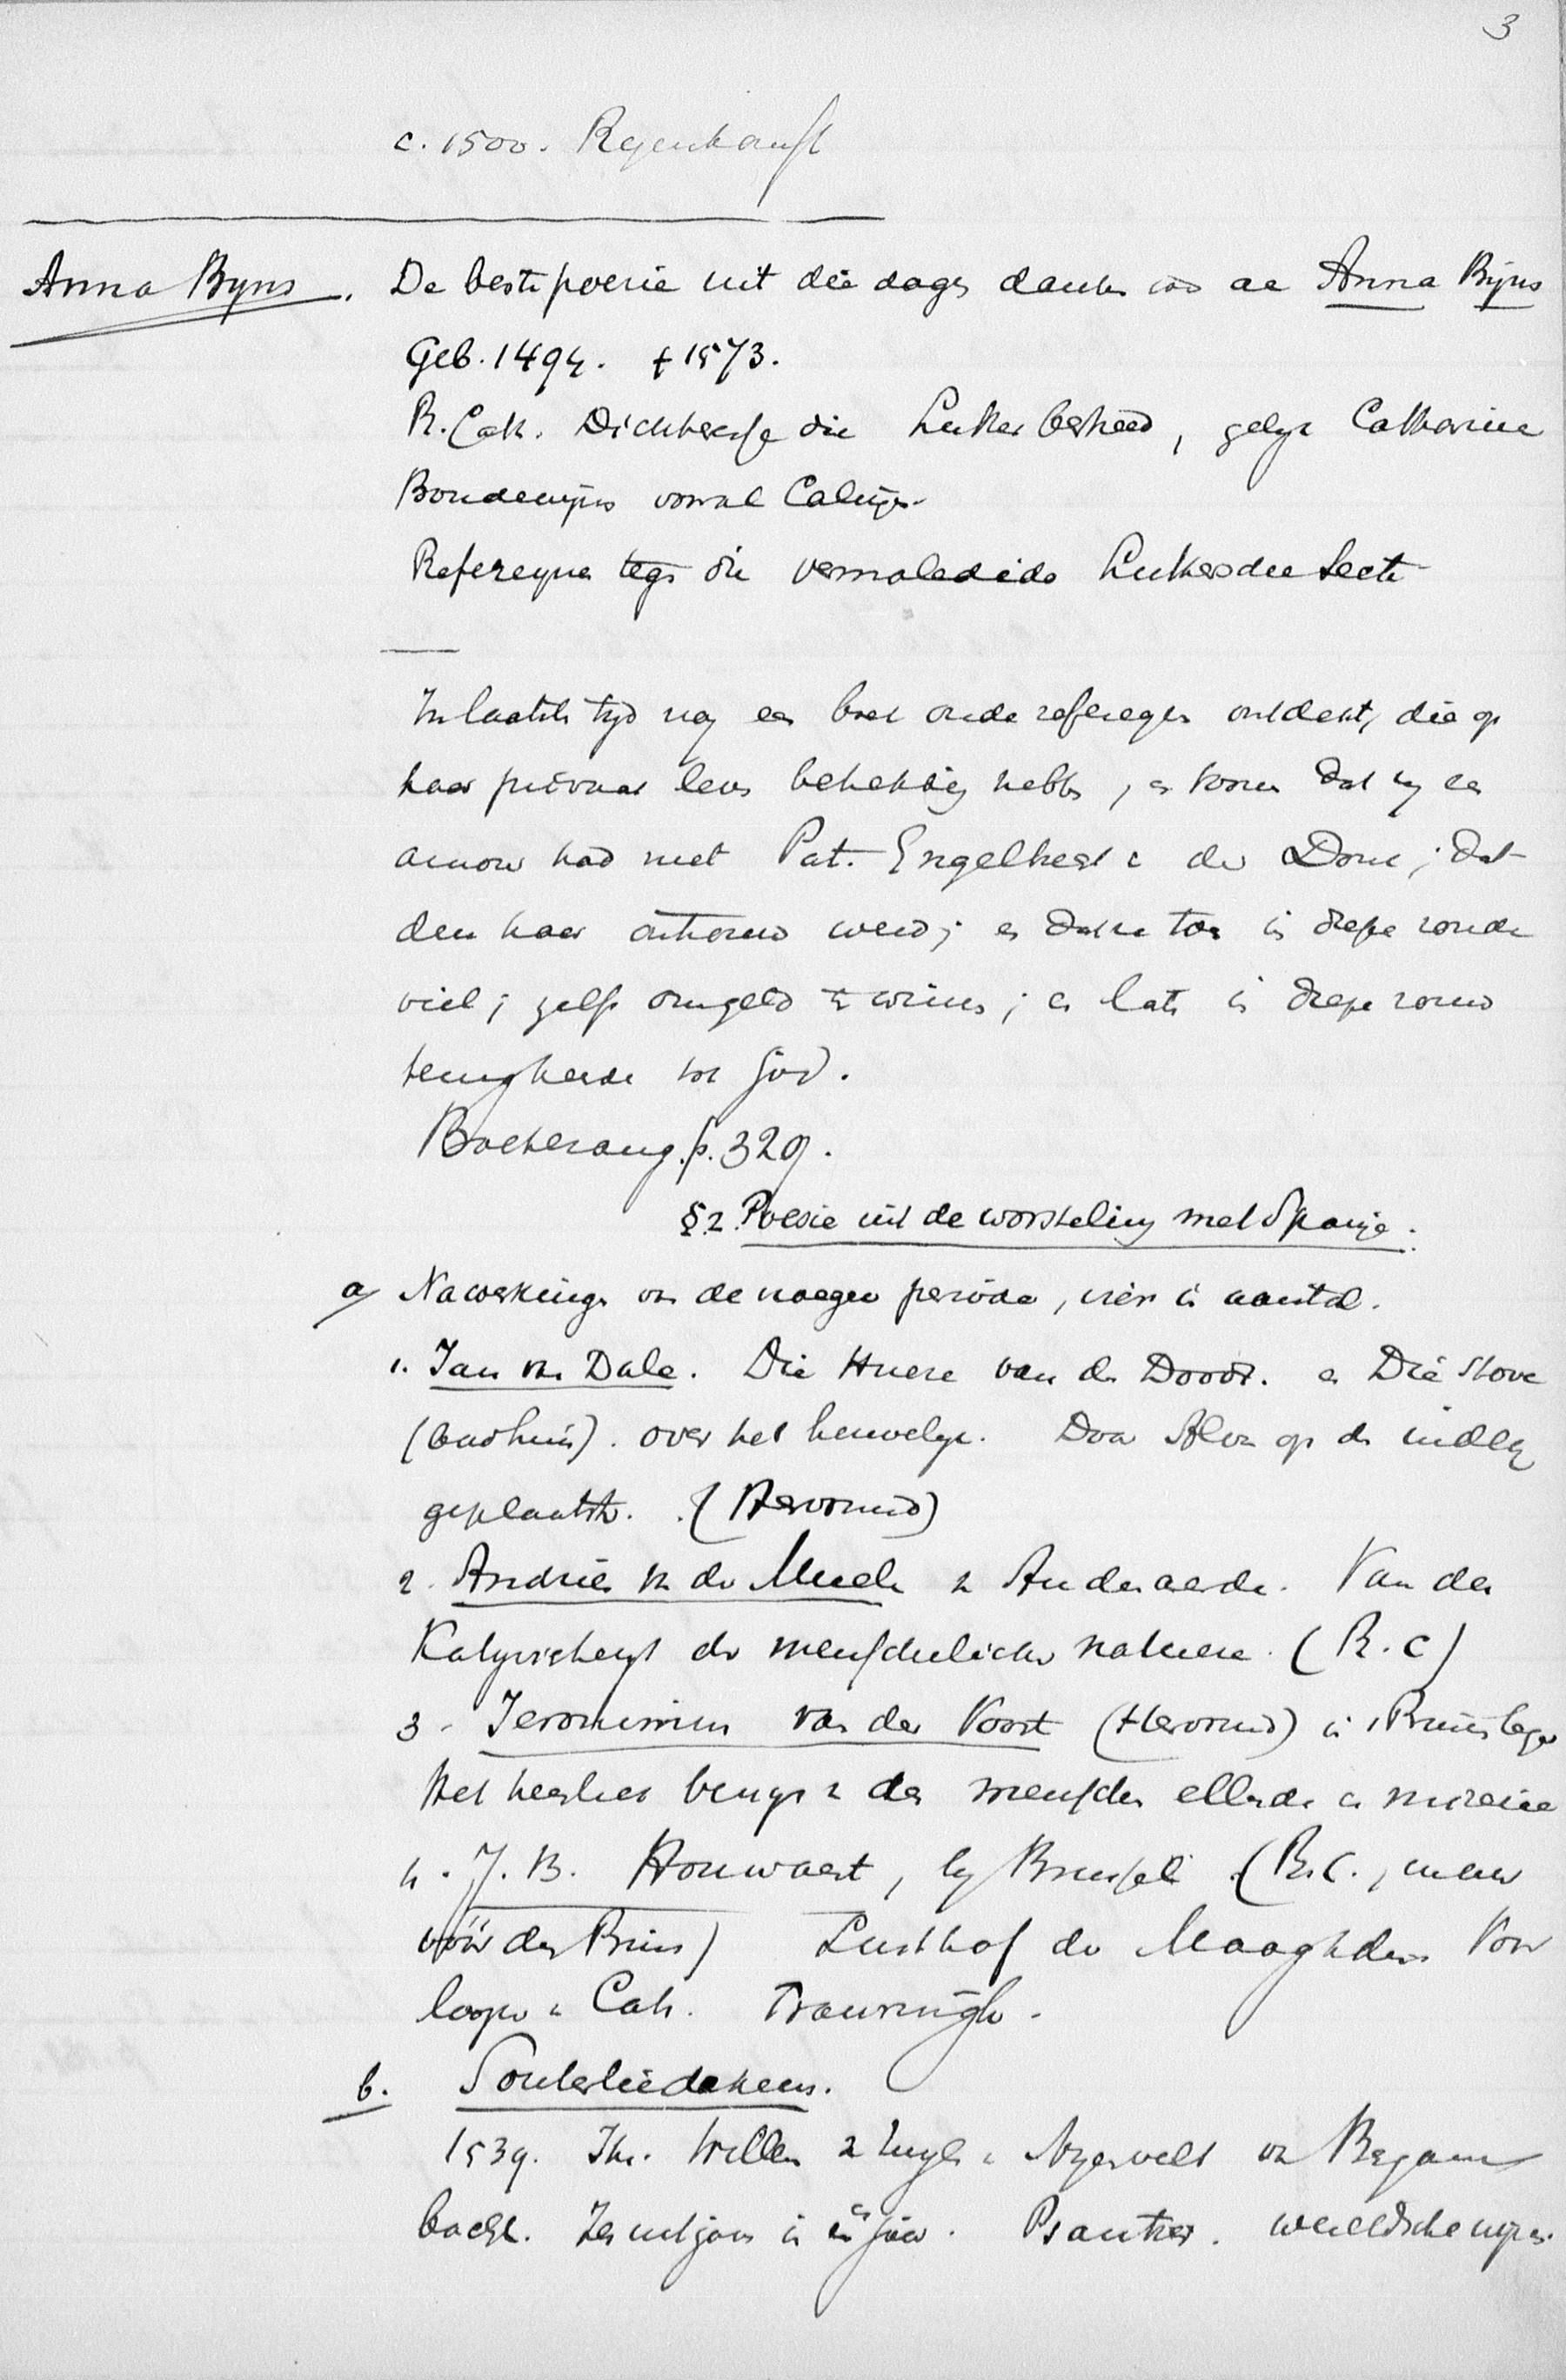 3
c. 1500.
Anna Byns. De beste poesie uit die dagen danken we aan Anna Bijns
Geb. 1494. † 1573.
R. Cath. Dichteresse die Luther bestreed, gelijk Catharina
Boudewijns vooral Calvijn.
Refereynen tegen die vermaledide Luthersche secte
In laatsten tijd nog een boek oude refereynen ontdekt, die op
haar privaat leven betrekking hebben, en toonen dat zij een
amour had met Pat. Engelhert v der Donc; dat
deze haar ontrouw werd; en dat ze toen in diepe zonde
viel; zelfs om geld te winnen; en later in diep rouw
terugkeerde tot God.
p. 329.
§ 2. Poesie uit de worsteling met Spanje.
a/ Nawerkingen van de vroegere periode, vier in aantal.
1. Jan van Dale. Die Huere van der Doodt. en Die Stove
(badhuis). over het huwelijk. Door Alva op de index
geplaatst. (Hervormd)
2. Andries v. der Muelen v Audenaerde. Van der
Katyvicheyt der menschelicker nature. (R.C)
3. Jeronimus van der Voort (Hervormd) in Prinsleger
Het heerlick bewys v des menschen ellende en miserie
4. J. B. Houwaert, bij Brussel (R.C., maar
vóór den Prins) Lusthof der Maaghden Voor
looper v Cats. Trouwringh.
b. Souterliedekens.
1539. Jhr. Willem v Zuylen v Nyevelt van
bacht. in één jaar. Psautier. wereldsche wijzen.